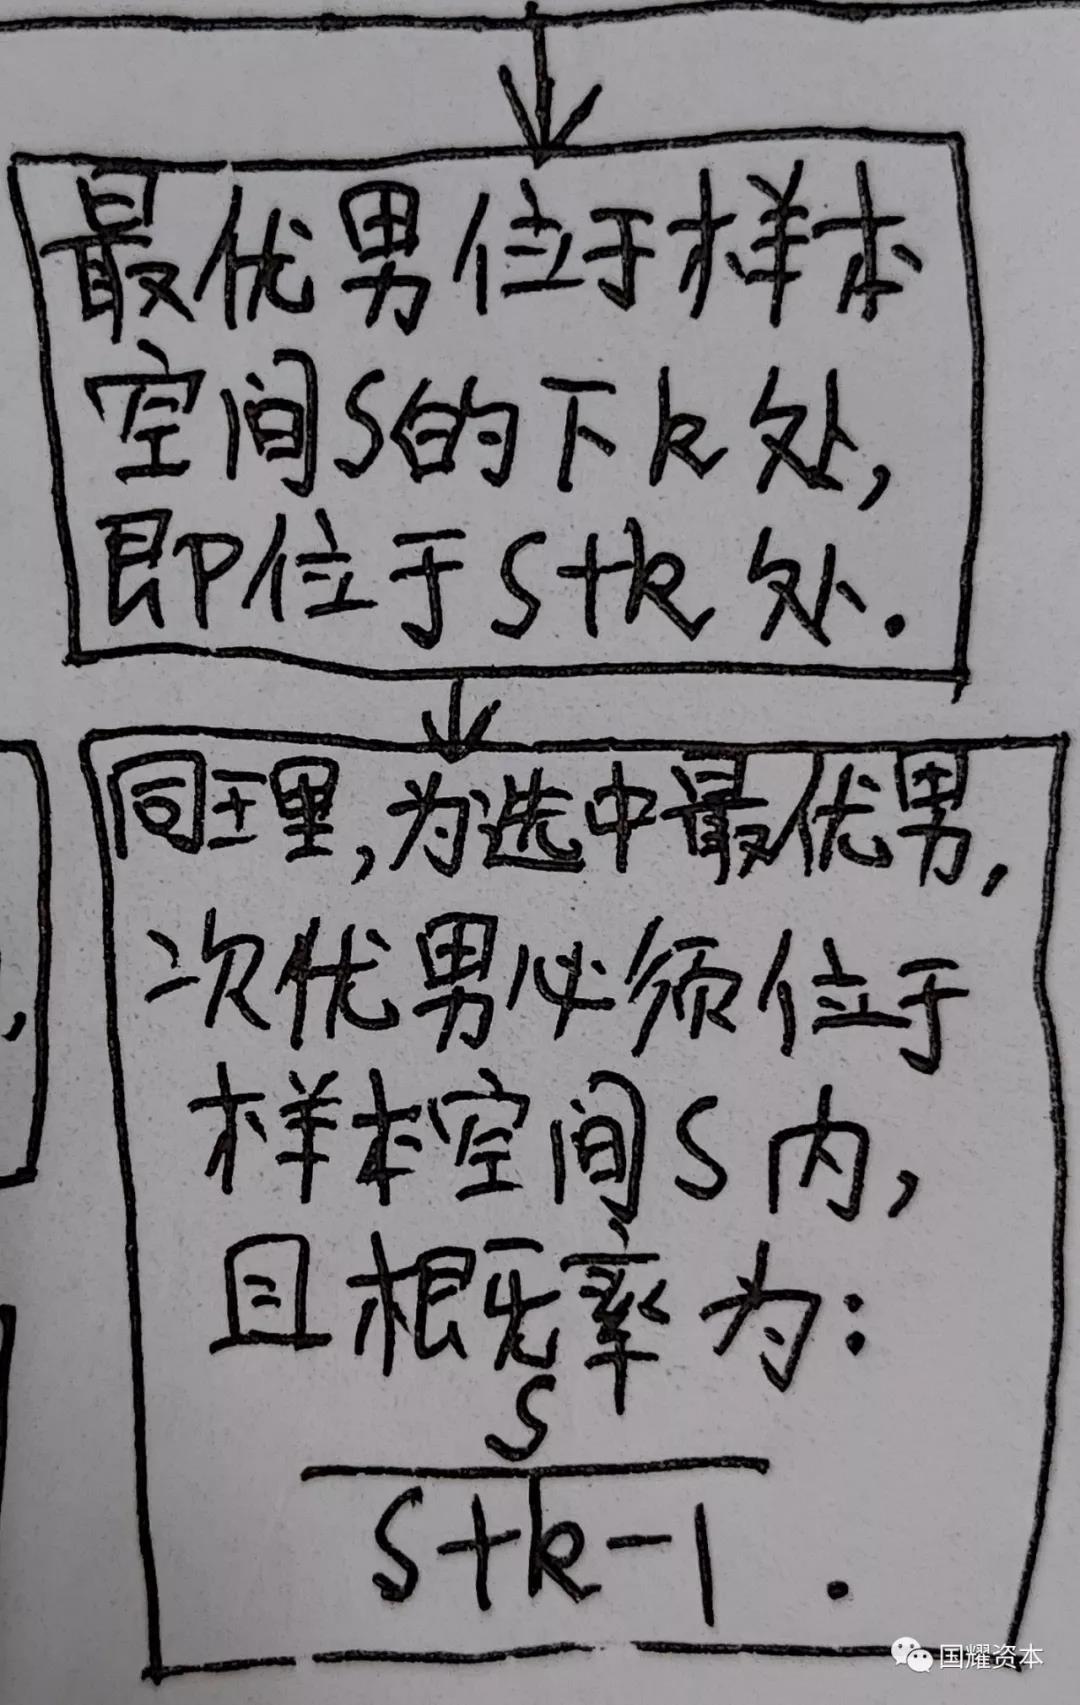 最优男位于样本
空间S的下k处,
即位于S+k处.
同理,为选中最优男,
次优男必须位于
样本空间S内,
且概率为:
S
S+k-1.
,
国耀资本